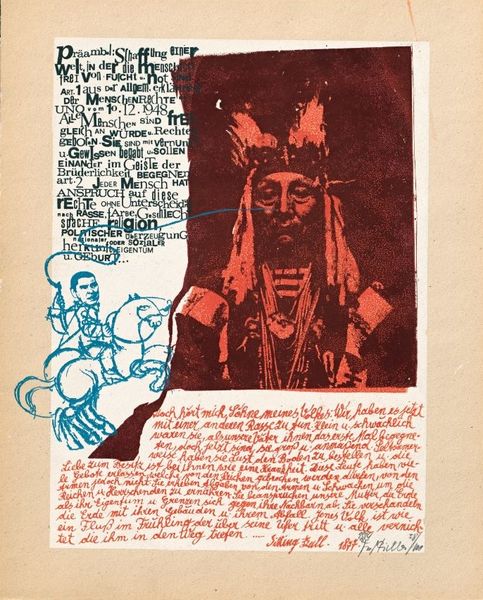 Präambel: Schaffung einer
Welt, in der die Menschen
frei von Furcht u. Not sind
Art. 1 aus der Allgem. Erklärung
der Menschenrechte
UNO vom 10. 12. 1948
Alle Menschen sind frei
gleich an Würde u. Rechte
geboren. Sie sind mit Vernunft
u. Gewissen begabt u. sollen
einander im Geiste der
Brüderlichkeit begegnen
art. 2 Jeder Mensch hat
Anspruch auf diese
rechte ohne Unterschied
nach Rasse, farbe, Geschlecht
sprache, religion
politischer überzeugung
nationaler oder sozialer
herkunft, eigentum
u. Geburt...
doch hört mich, Söhne meines Volkes: Wir haben es jetzt
mit einer anderen Rasse zu tun. Klein u. schwächlich
waren sie, als unsere Väter ihnen das erste Mal begegne-
ten, doch jetzt sind sie groß u. anmaßend. Seltsamer-
weise haben sie Lust den Boden zu bestellen u. die
Liebe zum Besitz ist bei ihnen wie eine Krankheit. Diese Leute haben vie-
le Gebote erlassen, welche von den Reichen gebrochen werden dürfen, von den
Armen jedoch nicht. Sie erheben Abgaben von den Armen u. Schwachen, um die
Reichen u. Herrschenden zu ernähren. Sie beanspruchen unsere Mutter, die Erde
als ihr Eigentum u. Grenzen sich gegen ihre Nachbarn ab. Sie verschandeln
die Erde mit ihren Gebäuden u. ihrem Abfall. Jenes Volk ist wie
ein Fluß im Frühling, der über seine Ufer tritt u. alle vernich-
tet die ihm in den Weg treten. ....
Sitting Bull. 1877